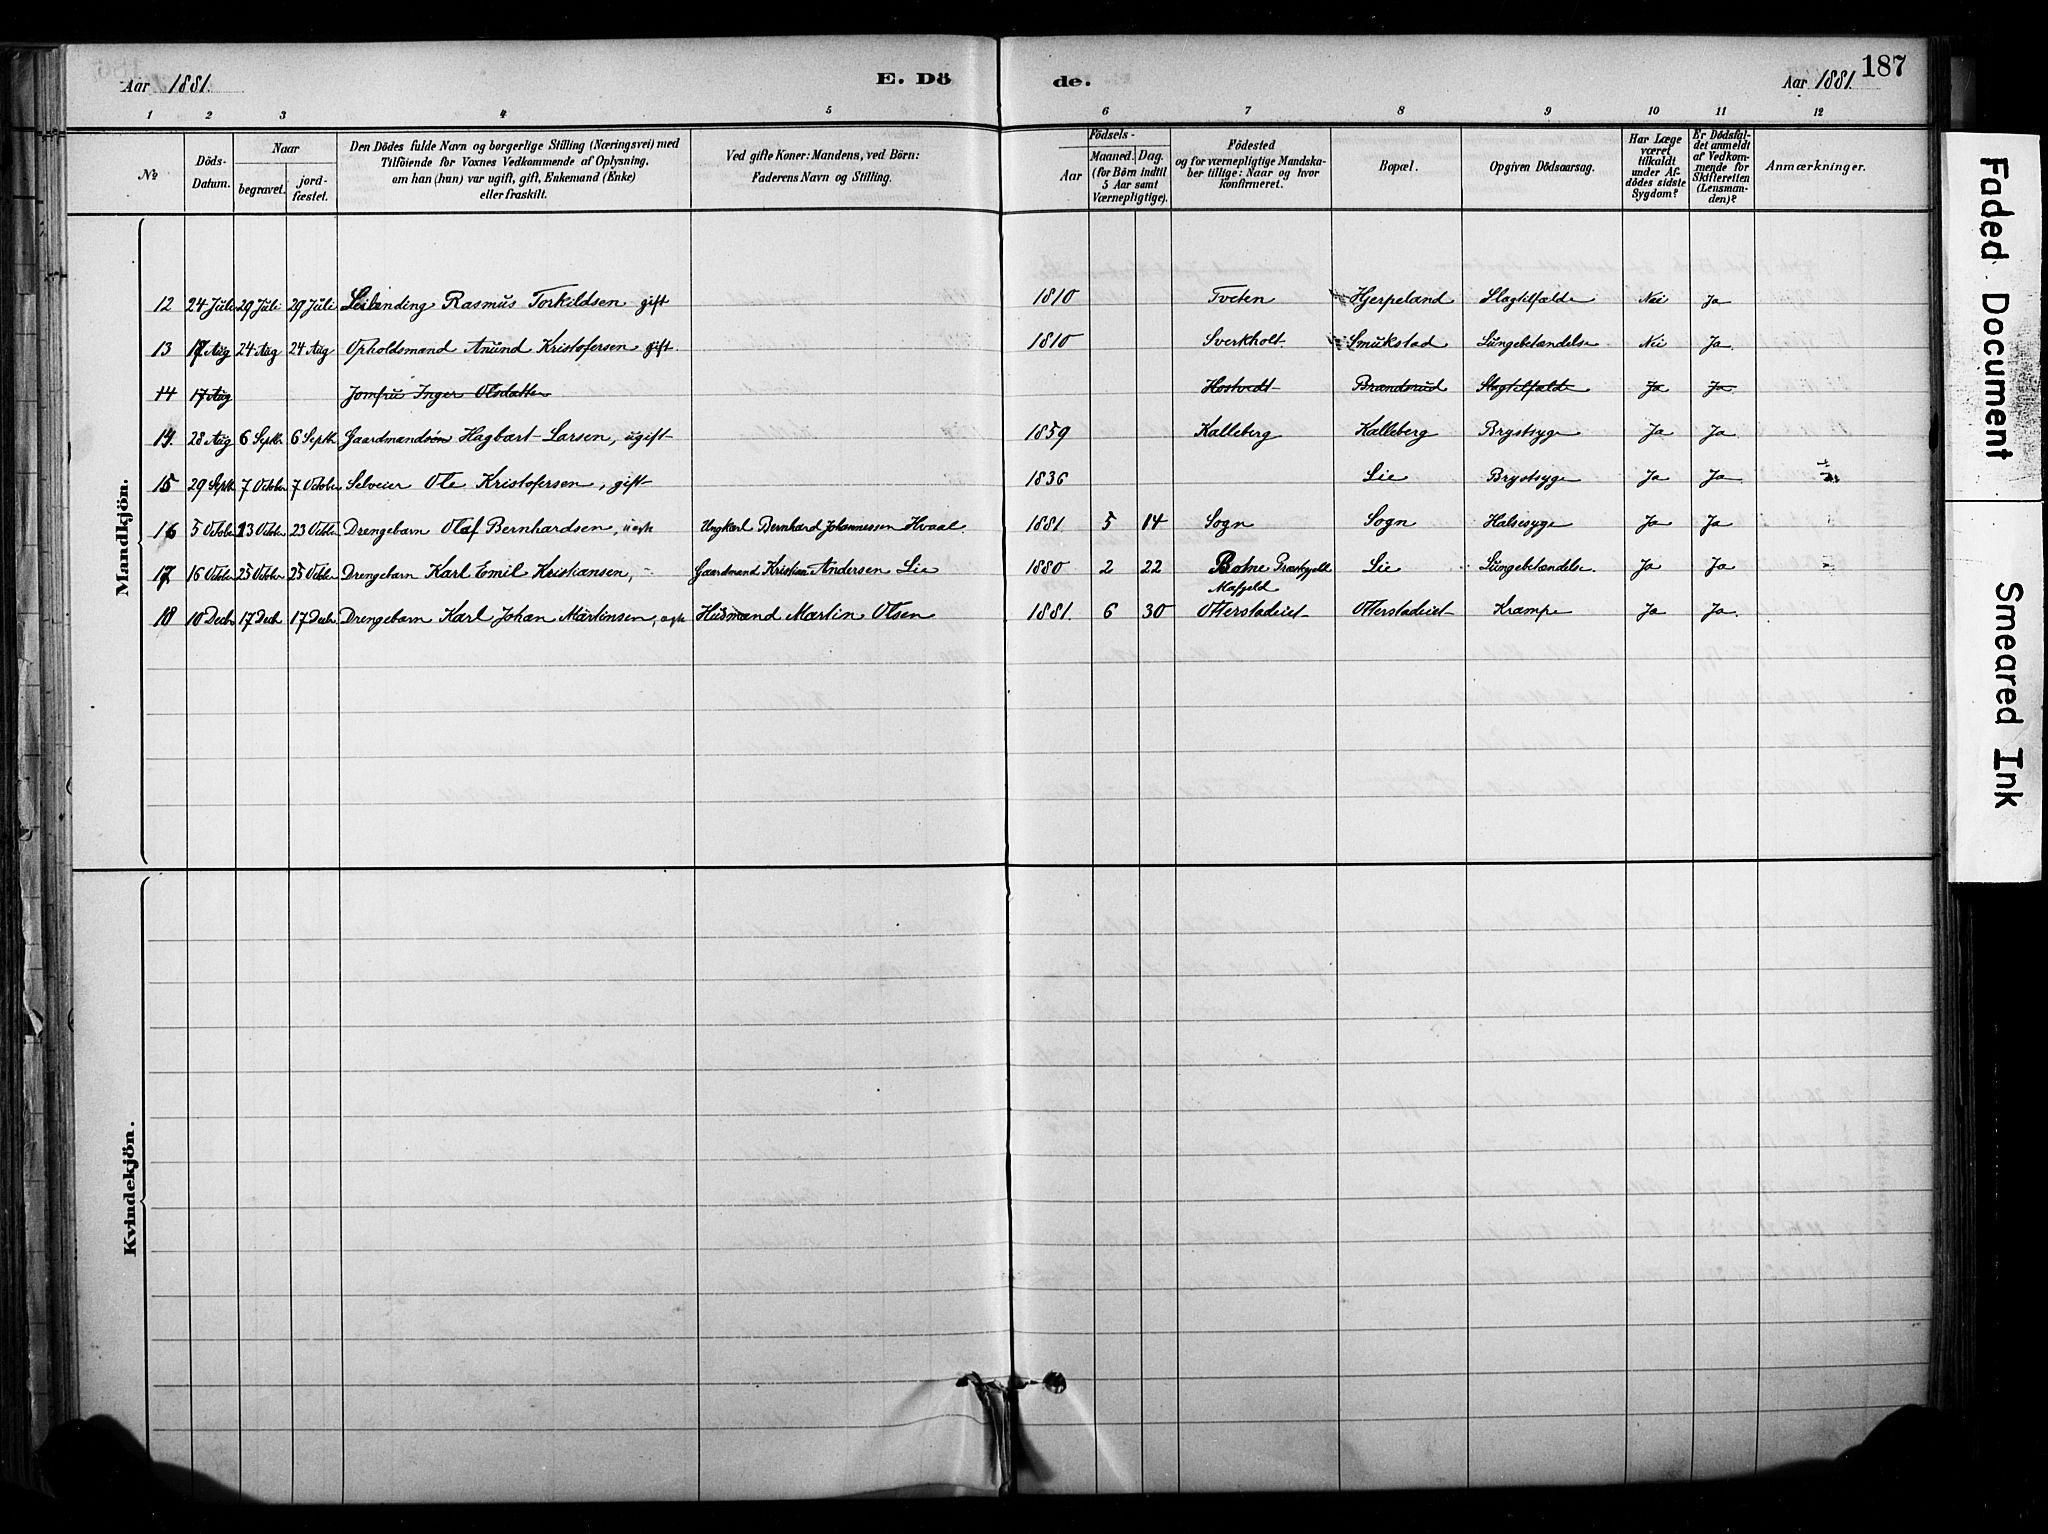 187
Aar 1881.
E. Dö
de.
Aar 1881.
1 2 3 4 5 6 7 8 9 10 11 12
№
Döds-Datum.
Naar
begravet.
jord-fæstet.
Den Dödes fulde Navn og borgerlige Stilling (Næringsvei) med
Tilföiende for Voxnes Vedkommende af Oplysning,
om han (hun) var ugift, gift, Enkemand (Enke)
eller fraskilt.
Ved gifte Koner: Mandens, ved Börn:
Faderens Navn og Stilling.
Födsels-
Aar
Maaned. Dag.
(for Börn indtil
5 Aar samt
Værnepligtige).
Födested
og for værnepligtige Mandska-
ber tillige: Naar og hvor
konfirmeret.
Bopæl.
Opgiven Dödsaarsag.
Har Læge
været
tilkaldt
under Af-
dödes sidste
Sygdom?
Er Dödsfal-
det anmeldt
af Vedkom-
mende for
Skifteretten
(Lensman-
den)?
Anmærkninger.
Mandkjön.
12 24 Juli 29 Juli 29 Juli Leilending Rasmus Torkildsen gift 1810 Tveten Hjerpeland Slagtilfælde Nei Ja
13 17 Aug 24 Aug 24 Aug Opholdsmand Anund Kristofersen gift. 1810 Sverkholt Smukstad Lungebetændelse Nei Ja.
14 17 Aug Jomfru Inger Olsdatter Hostvedt Brændsrud Slagtilfælde Ja Ja
14. 28 Aug 6 Septbr 6 Septbr Gaardmandsøn Hagbart Larsen, ugift 1859 Kalleberg Kalleberg Brystsyge Ja Ja.
15 29 Septb 7 October 7 October Selveier Ole Kristofersen, gift 1836 Lie Brystsyge Ja Ja
16 5 October 23 October 23 October Drengebarn Olaf Bernhardsen, uegte Ungkarl Bernhard Johannessen Hvaal. 1881. 5 14 Sogn Sogn Halsesyge Ja Ja
17 16 October 25 October 25 Octbr Drengebarn Karl Emil Kristiansen, - Gaardmand Kristian Andersen Lie 1880 2 22 Botne Præstegjeld Lie Lungebetændelse. Ja Ja
18 10 Decbr 17 Decb 17 Decbr Drengebarn Karl Johan Martinsen, egte Husmand Martin Olsen 1881. 6 30 Otterstadeiet Otterstadeiet Krampe Ja Ja.
Kvindekjön.
Faded Document
Smeared Ink